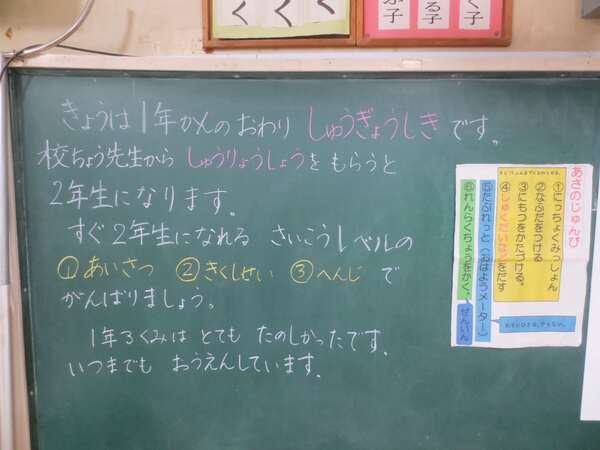 く
く
く
か子
る子
く子
きょうは1年かんのおわり しゅうぎょうしきです。
校ちょう先生から しゅうりょうしょうをもらうと
2年生になります。
すぐ2年生になれる さいこうレベルの
①あいさつ ②きくしせい ③へんじ で
がんばりましょう。
1年3くみは とても たのしかったです。
いつまでも おうえんしています。
あさのじゅんび
①にっちょくみっしょん
②なふだをつける
③にもつをかたづける。
④しゅくだいなどをだす
⑤たぶれっと(おはようメーター)
⑥れんらくちょうをかく。
ぜんいん